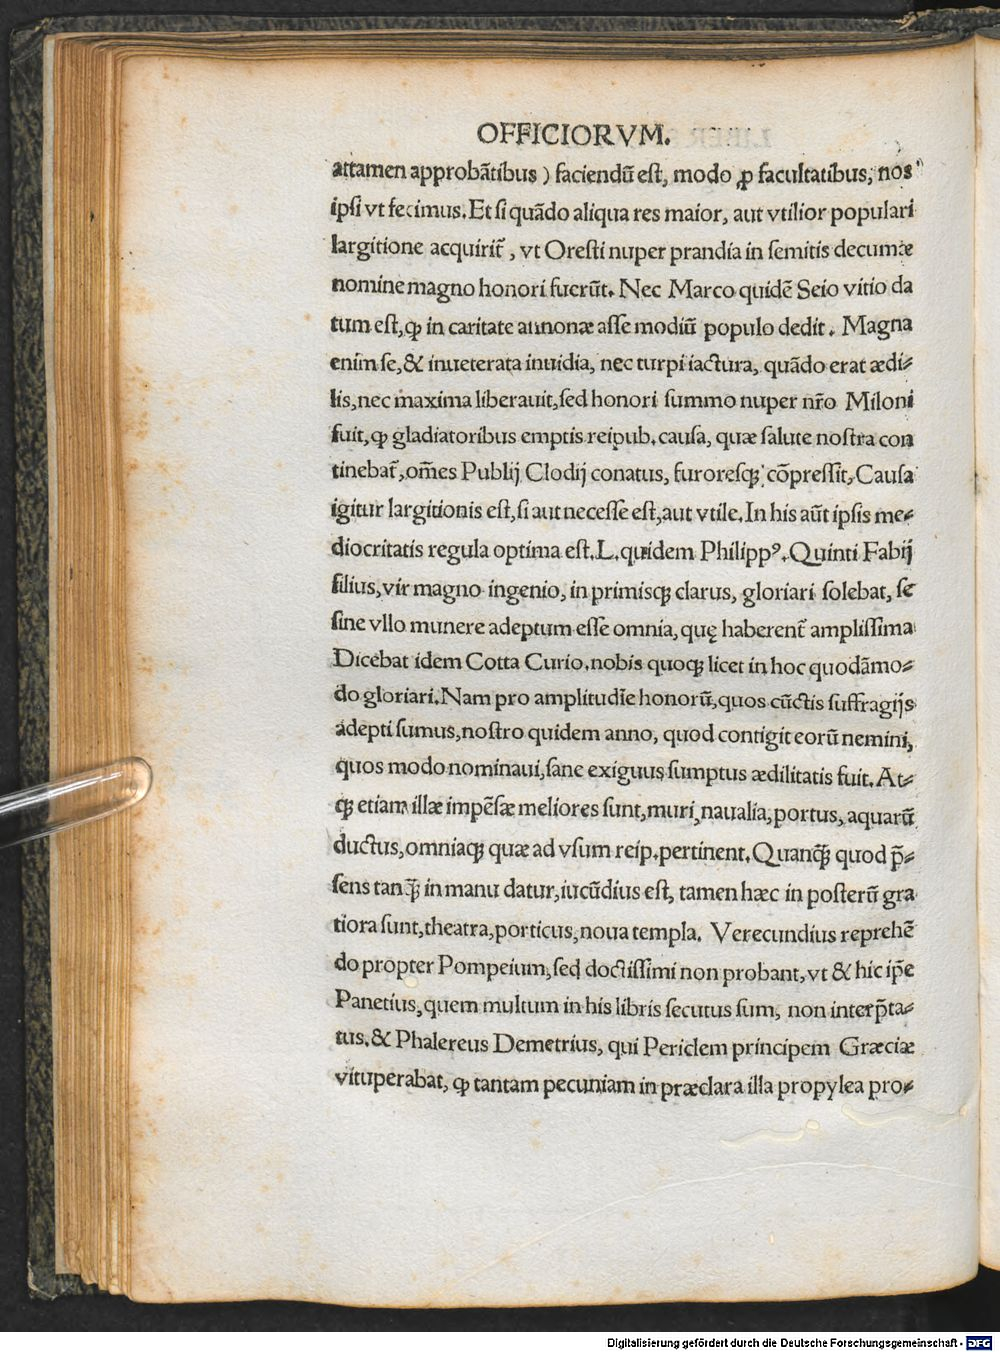 OFFICIORVM.
attamen approbãtibus) faciendũ eſt, modo ꝓ facultatibus, nos
ipſi vt fecimus. Et ſi quãdo aliqua res maior, aut vtilior populari
largitione acquirit̃, vt Oreſti nuper prandia in ſemitis decumæ
nomine magno honori fuerũt. Nec Marco quidẽ Seio vitio da
tum eſt, ꝙ in caritate annonæ aſſe modiũ populo dedit. Magna
enim ſe, & inueterata inuidia, nec turpi iactura, quãdo erat ædi⸗
lis, nec maxima liberauit, ſed honori ſummo nuper nr̃o Miloni
fuit, ꝙ gladiatoribus emptis reipub. cauſa, quæ ſalute noſtra con
tinebat̃, om̃es Publij Clodij conatus, furoreſqꝫ cõpreſſit, Cauſa
igitur largitionis eſt, ſi aut neceſſe eſt, aut vtile. In his aũt ipſis me⸗
diocritatis regula optima eſt. L. quidem Philippꝰ. Quinti Fabij
filius, vir magno ingenio, in primiſqꝫ clarus, gloriari ſolebat, ſe
ſine vllo munere adeptum eſſe omnia, quę haberent̃ ampliſſima
Dicebat idem Cotta Curio. nobis quoqꝫ licet in hoc quodãmo⸗
do gloriari. Nam pro amplitudĩe honorũ, quos cũctis ſuffragijs
adepti ſumus, noſtro quidem anno, quod contigit eorũ nemini,
quos modo nominaui, ſane exiguus ſumptus ædilitatis fuit. At⸗
qꝫ etiam illæ impẽſæ meliores ſunt, muri, naualia, portus, aquarũ
ductus, omniaqꝫ quæ ad vſum reip. pertinent. Quanqꝫ̃ quod p̃⸗
ſens tanqꝫ̃ in manu datur, iucũdius eſt, tamen hæc in poſterũ gra
tiora ſunt, theatra, porticus, noua templa. Verecundius reprehẽ
do propter Pompeium, ſed doctiſſimi non probant, vt & hic ip̃e
Panetius, quem multum in his libris ſecutus ſum, non interp̃ta⸗
tus. & Phalereus Demetrius, qui Periclem principem Græciæ
vituperabat, ꝙ tantam pecuniam in præclara illa propylea pro⸗
Digitalisierung gefördert durch die Deutsche Forschungsgemeinschaft - DFG